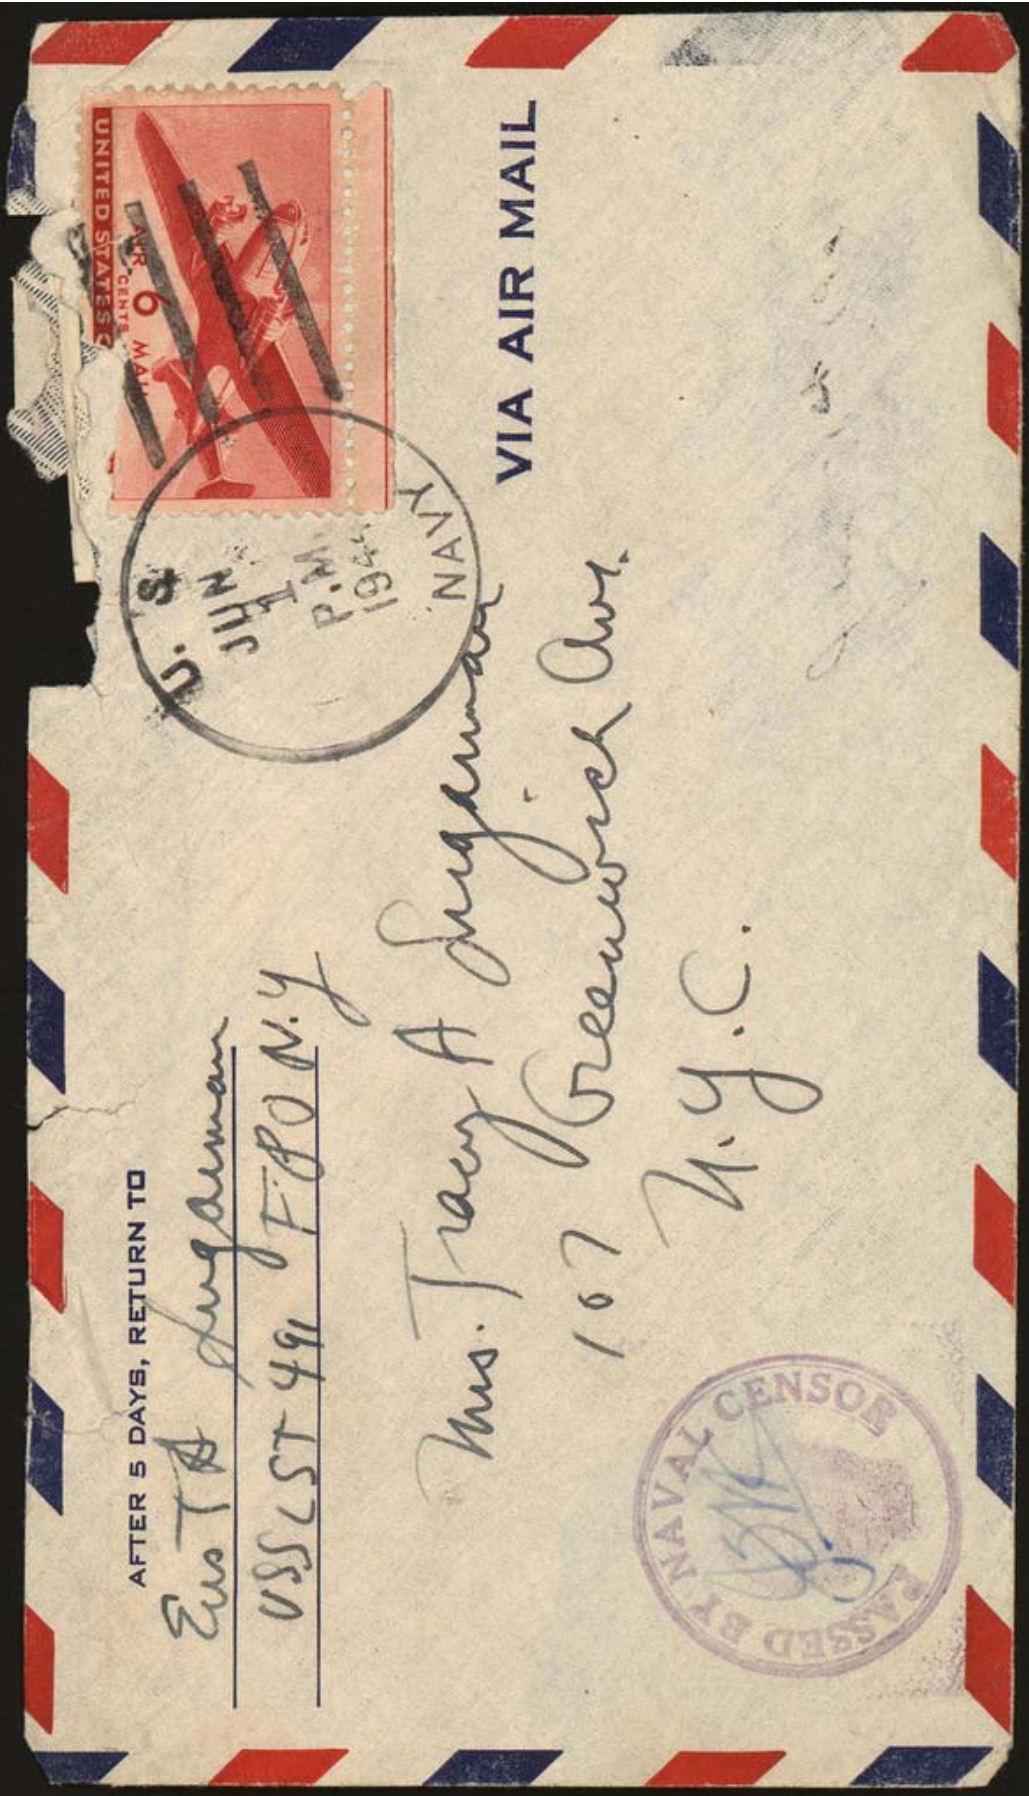 AFTER 5 DAYS, RETURN TO
Ens T A Sugarman
USS LST 491 FPO N.Y
UNITED STATES O
AIR MAIL
6
CENTS
U. S.
JUN
1
P.M.
194
NAVY
VIA AIR MAIL
Mrs. Tracy A Sugarman
107 Greenwich Ave.
N.Y.C.
PASSED BY NAVAL CENSOR